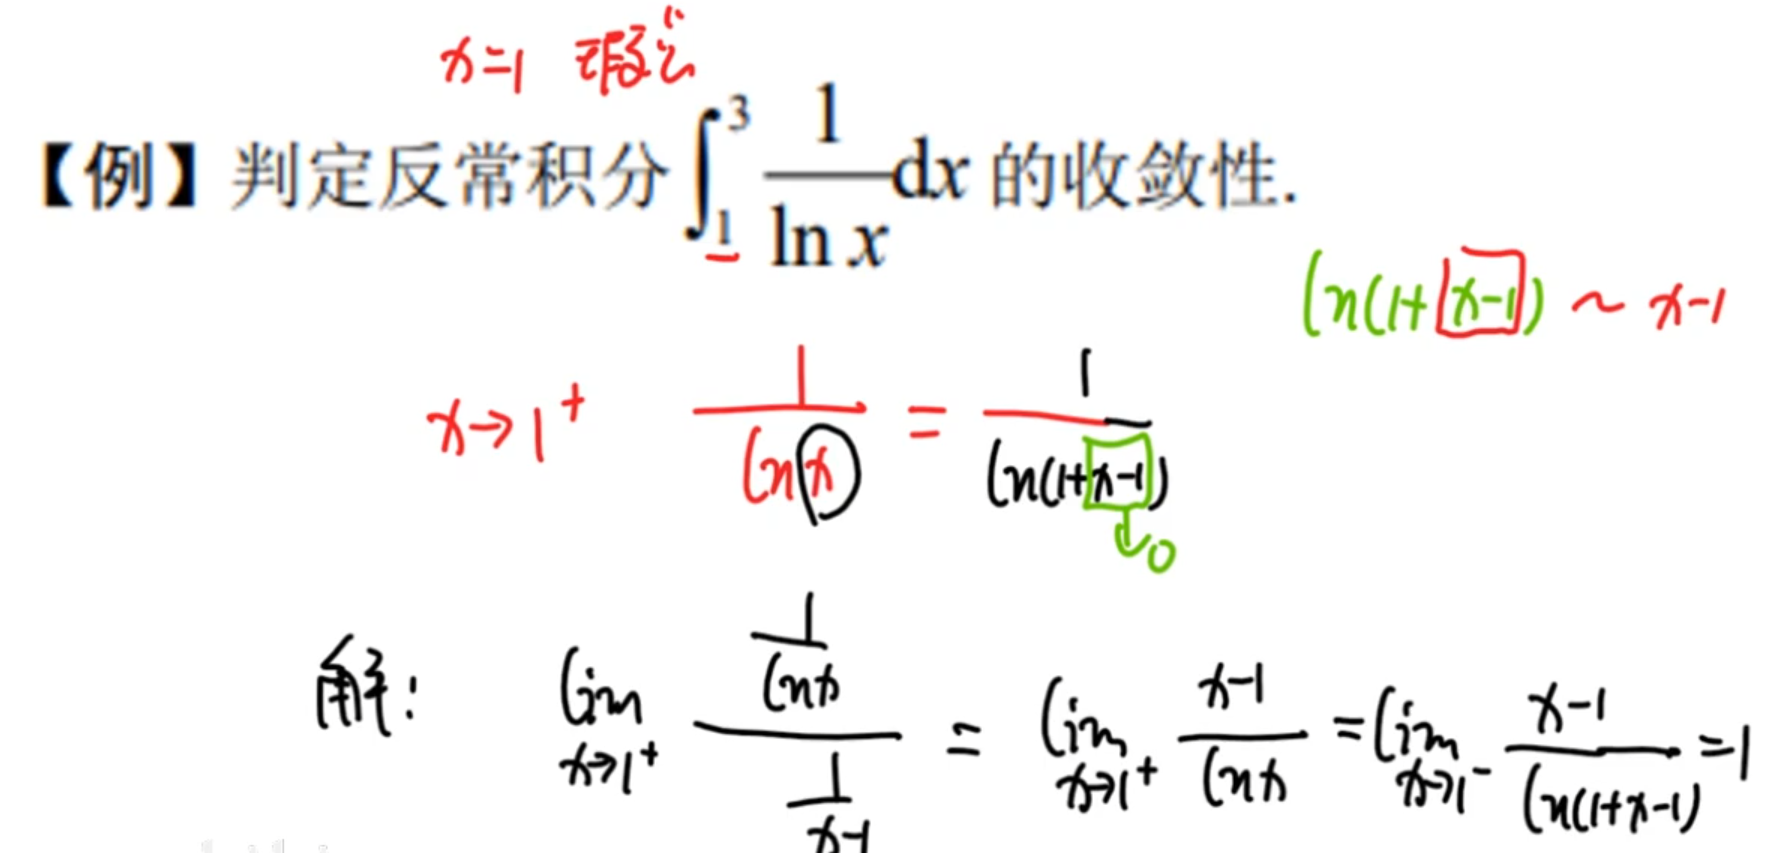 x=1 瑕点
【例】判定反常积分 ∫₁³ 1/ln x dx 的收敛性.
ln(1+x-1) ~ x-1
x→1⁺ 1/ln x = 1/ln(1+x-1)
↓0
解: lim x→1⁺ (1/ln x)/(1/x-1) = lim x→1⁺ x-1/ln x = lim x→1⁻ x-1/ln(1+x-1) = 1